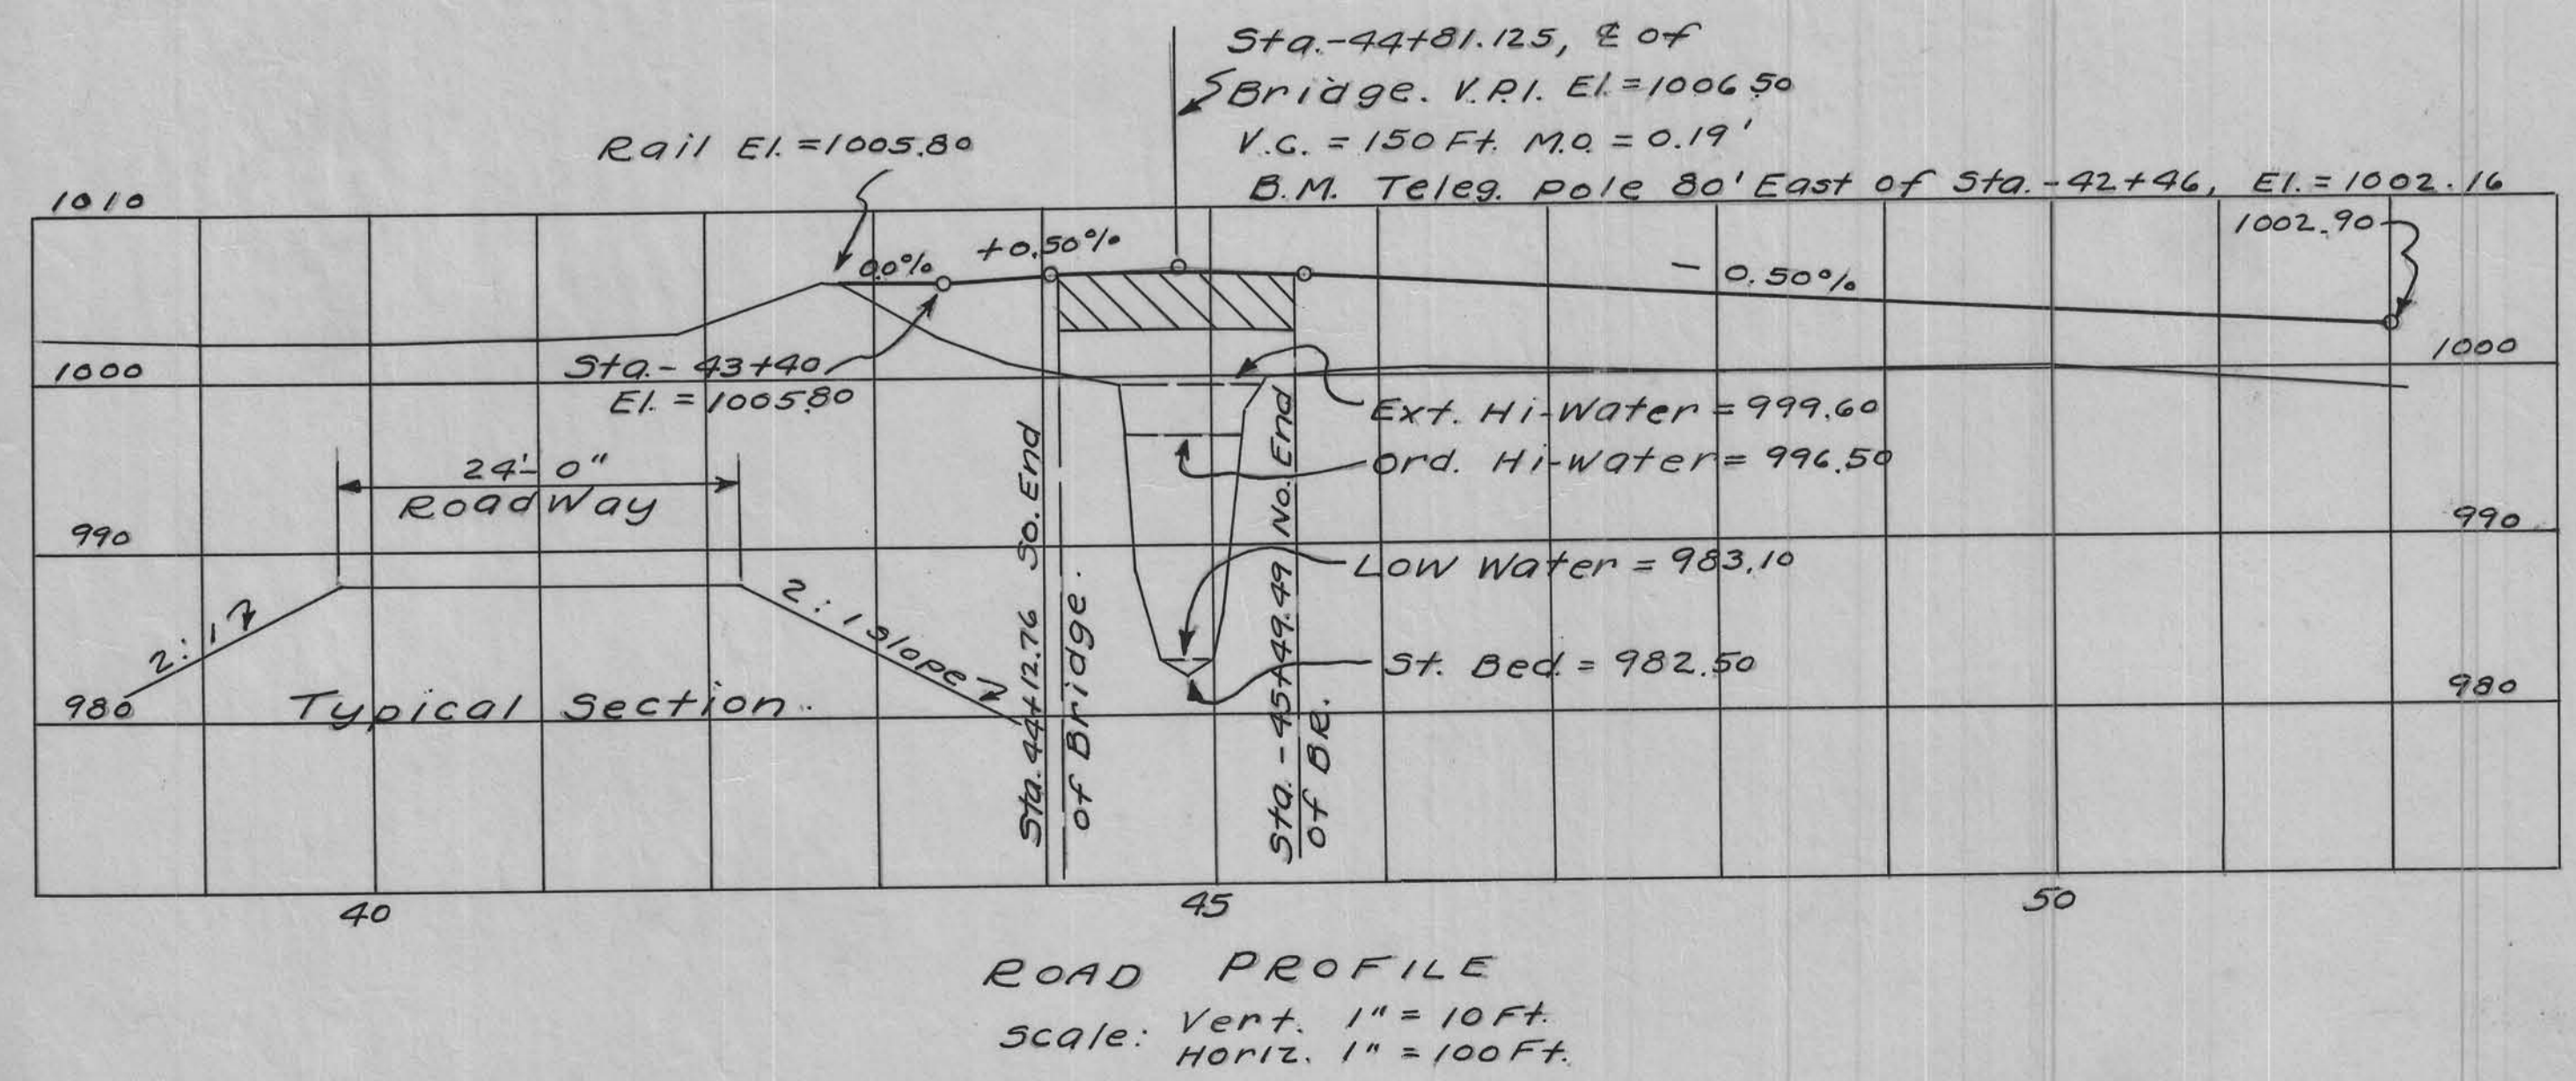 Sta.-44+81.125, ℄ of
Bridge. V.P.I. El.=1006.50
V.C. = 150 Ft. M.O. = 0.19'
B.M. Teleg. pole 80' East of Sta.-42+46, El.=1002.16
Rail El.=1005.80
1010
1002.90
0.0%
+0.50%
- 0.50%
1000
1000
Sta.- 43+40
El. = 1005.80
Ext. Hi-Water = 999.60
Ord. Hi-Water = 996.50
24'-0"
RoadWay
990
990
Low Water = 983.10
St. Bed = 982.50
2:1
2:1 slope
980
980
Typical Section.
Sta. 44+12.76 So. End
of Bridge.
Sta. - 45+49.49 No. End
of BR.
40
45
50
ROAD PROFILE
Scale: Vert. 1" = 10 Ft.
Horiz. 1" = 100 Ft.